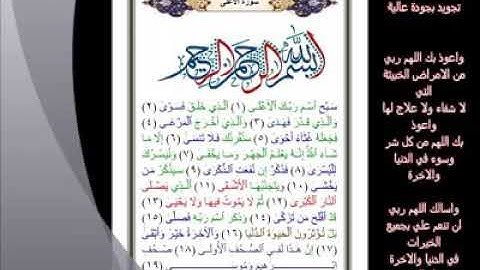 سورة الأعلى
بسم الله الرحمن الرحيم
سَبِّحِ اسْمَ رَبِّكَ الْأَعْلَى (١) الَّذِي خَلَقَ فَسَوَّى (٢)
وَالَّذِي قَدَّرَ فَهَدَى (٣) وَالَّذِي أَخْرَجَ الْمَرْعَى (٤)
فَجَعَلَهُ غُثَاءً أَحْوَى (٥) سَنُقْرِئُكَ فَلَا تَنْسَى (٦) إِلَّا مَا
شَاءَ اللَّهُ إِنَّهُ يَعْلَمُ الْجَهْرَ وَمَا يَخْفَى (٧) وَنُيَسِّرُكَ
لِلْيُسْرَى (٨) فَذَكِّرْ إِنْ نَفَعَتِ الذِّكْرَى (٩) سَيَذَّكَّرُ مَنْ
يَخْشَى (١٠) وَيَتَجَنَّبُهَا الْأَشْقَى (١١) الَّذِي يَصْلَى
النَّارَ الْكُبْرَى (١٢) ثُمَّ لَا يَمُوتُ فِيهَا وَلَا يَحْيَى (١٣)
قَدْ أَفْلَحَ مَنْ تَزَكَّى (١٤) وَذَكَرَ اسْمَ رَبِّهِ فَصَلَّى (١٥)
بَلْ تُؤْثِرُونَ الْحَيَاةَ الدُّنْيَا (١٦) وَالْآخِرَةُ خَيْرٌ وَأَبْقَى
(١٧) إِنَّ هَذَا لَفِي الصُّحُفِ الْأُولَى (١٨) صُحُفِ
إِبْرَاهِيمَ وَمُوسَى (١٩)
تجويد بجودة عالية
واعوذ بك اللهم ربي
من الامراض الخبيثة
التي
لا شفاء ولا علاج لها
واعوذ
بك اللهم من كل شر
وسوء في الدنيا
والاخرة
واسالك اللهم ربي
ان تنعم علي بجميع
الخيرات
في الدنيا والاخرة